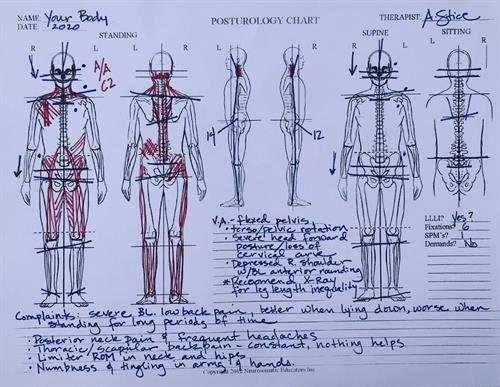 NAME: Your Body
DATE: 2020
POSTUROLOGY CHART
THERAPIST: A. Stice
STANDING
SUPINE
SITTING
R L L R
R L L R
A/A
C2
14
12
V.A. - flexed pelvis
• torso/pelvic rotation
• Severe head forward
posture/loss of
cervical curve
• Depressed R. shoulder
w/BL anterior rounding
* Recomend X-Ray
for leg length inequality
LLLI? Yes?
Fixations? 6
SPM's?
Demands? No
Complaints: severe BL. low back pain, better when lying down, worse when
standing for long periods of time
• Posterior neck pain & frequent headaches
• Thoracic/scapular back pain - constant, nothing helps
• Limiter ROM in neck and hips
• Numbness & tingling in arms & hands.
Copyright 2012 Neurosomatic Educators Inc